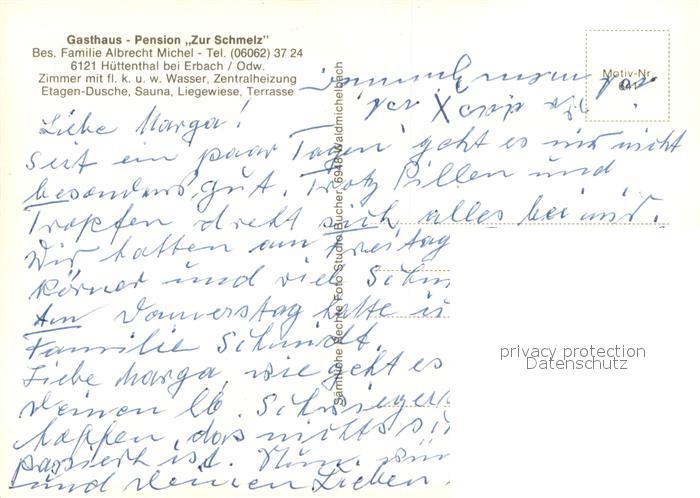 Gasthaus - Pension „Zur Schmelz"
Bes. Familie Albrecht Michel - Tel. (06062) 37 24
6121 Hüttenthal bei Erbach / Odw.
Zimmer mit fl. k. u. w. Wasser, Zentralheizung
Etagen-Dusche, Sauna, Liegewiese, Terrasse
Motiv-Nr.
Liebe Marga!
Seit ein paar Tagen geht es mir nicht
besonders gut. Trotz Pillen und
Tropfen dreht sich alles bei mir.
Wir hatten am Freitag
Körner und viel
Am Donnerstag hatte
Familie Schmidt.
Liebe Marga, wie geht es
Deinen lb.
hoffen, das nichts
passiert ist. Nun
und Deinen Lieben
Sämtliche Rechte Foto Studio Bucher, 6948 Waldmichelbach
privacy protection
Datenschutz